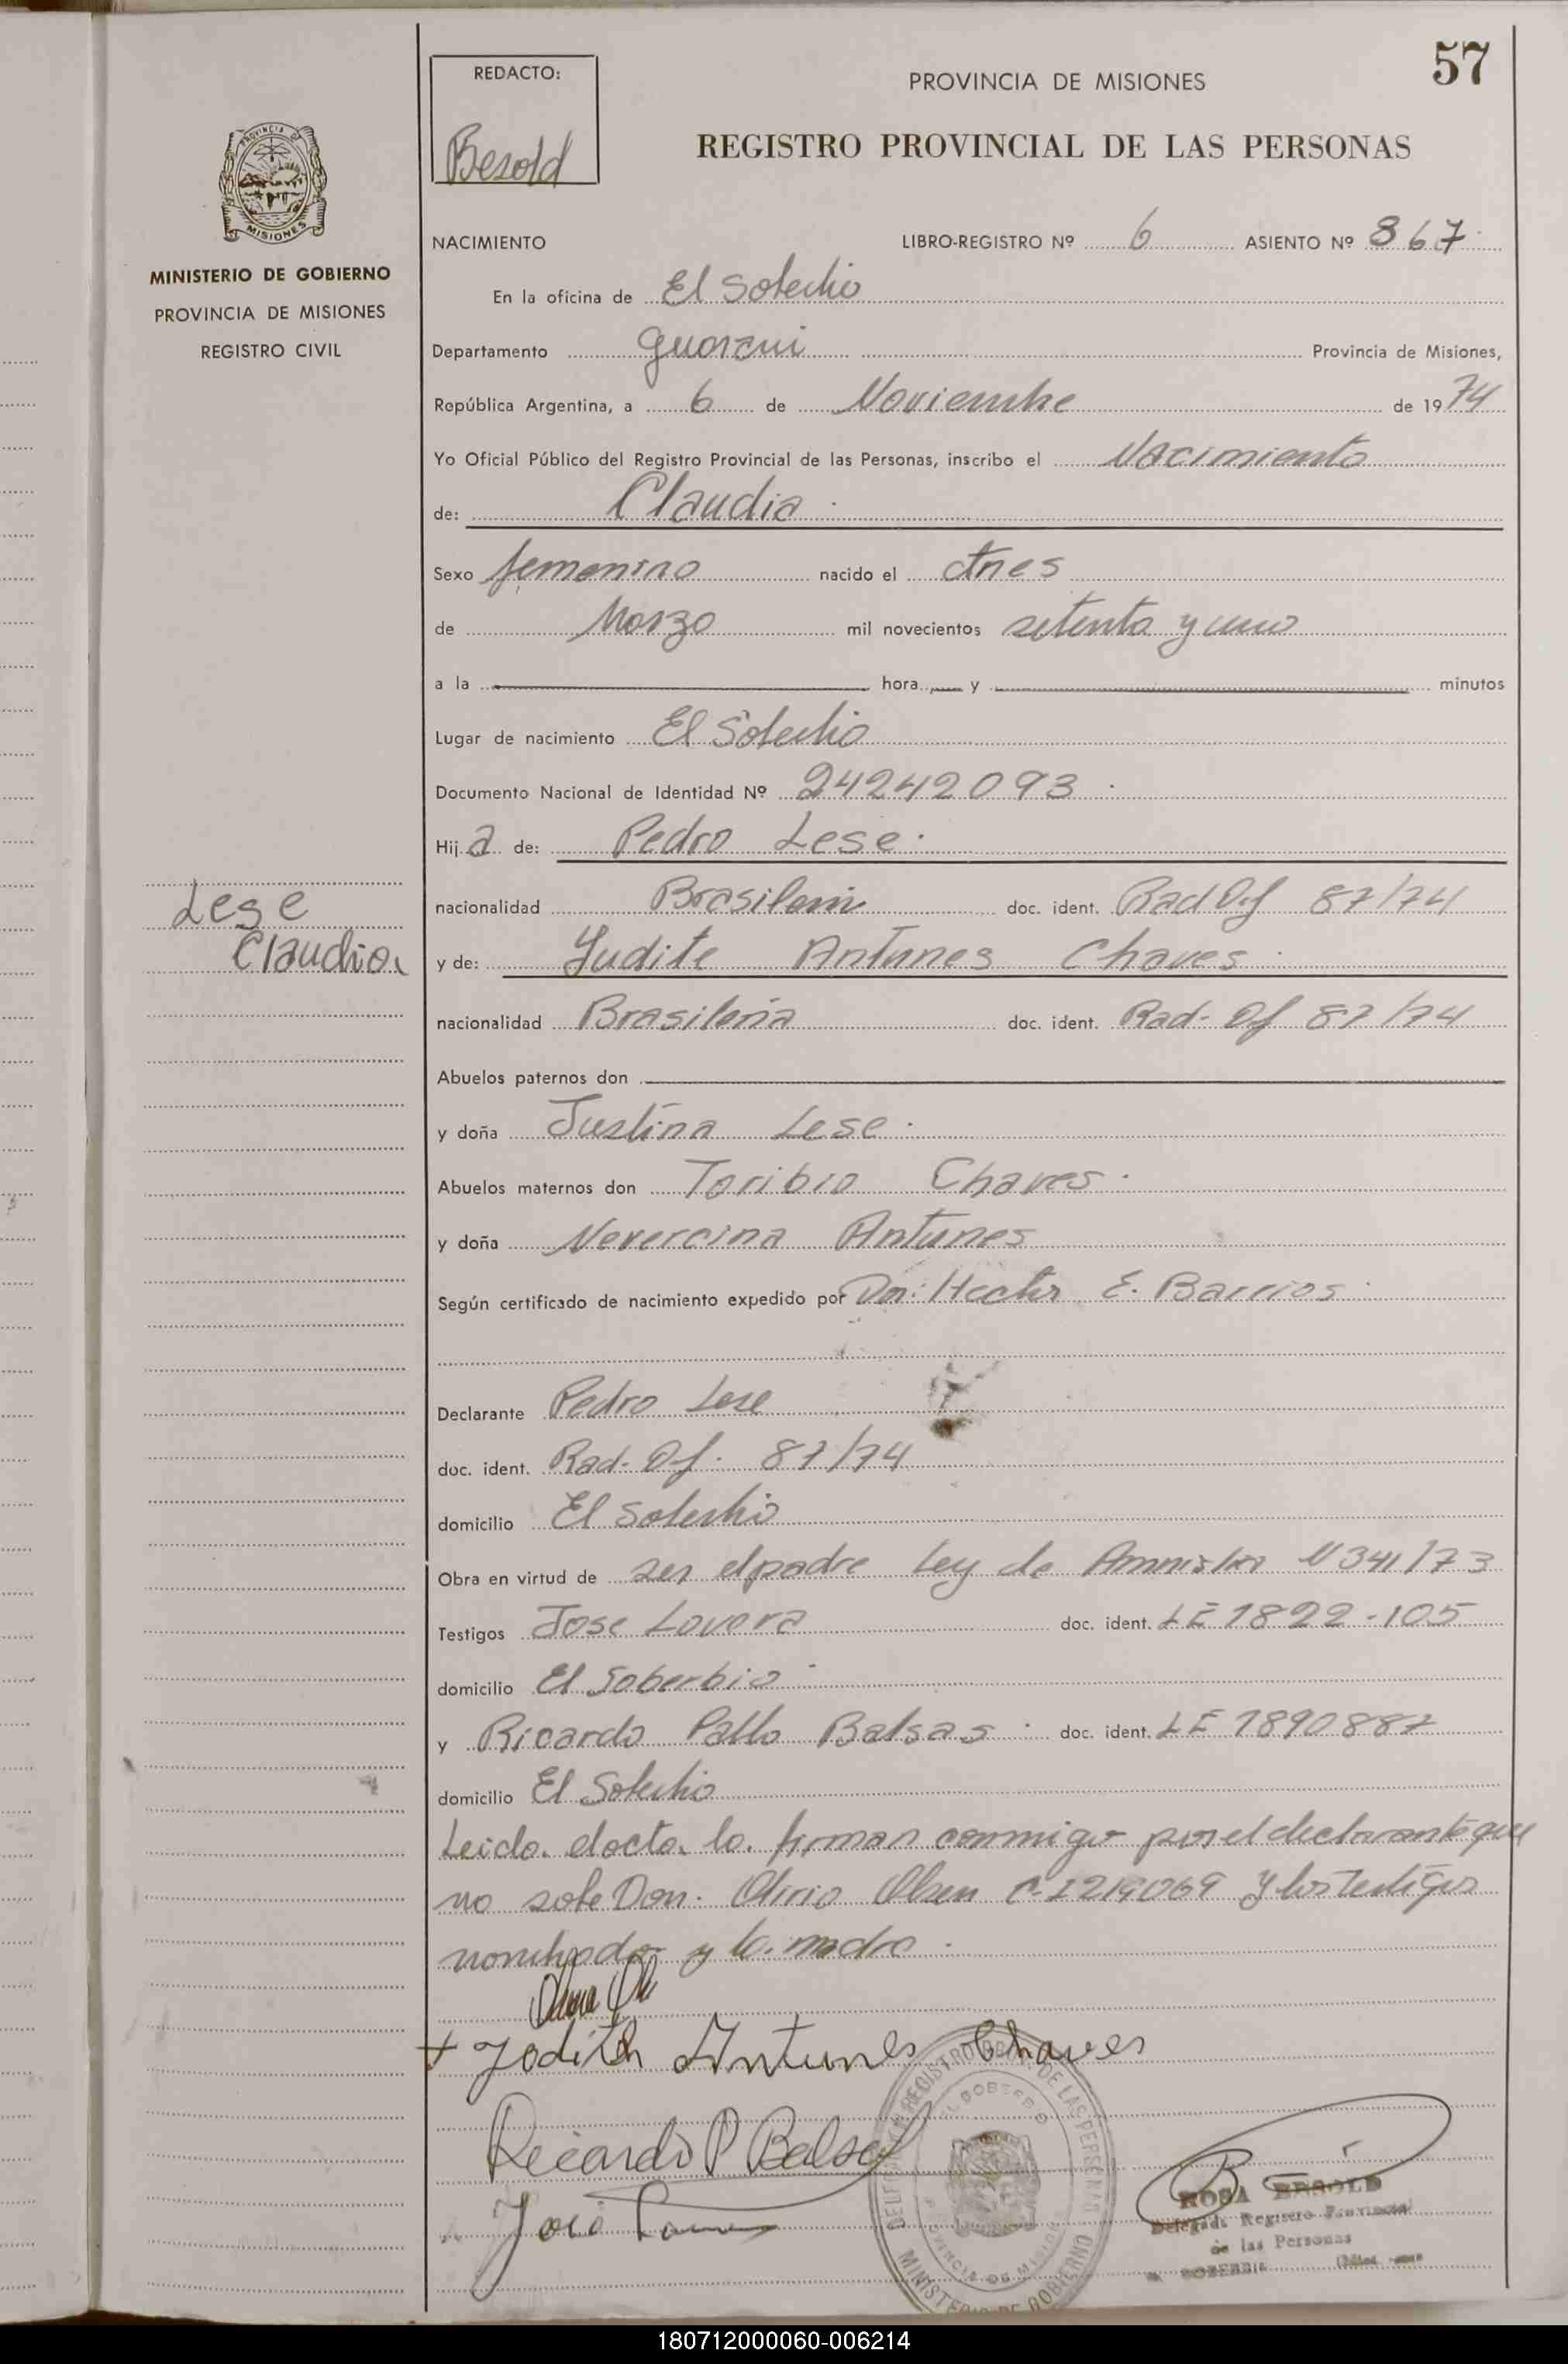 57
REDACTO:
Besold
PROVINCIA DE MISIONES
REGISTRO PROVINCIAL DE LAS PERSONAS
PROVINCIA DE
MISIONES
MINISTERIO DE GOBIERNO
PROVINCIA DE MISIONES
REGISTRO CIVIL
NACIMIENTO LIBRO-REGISTRO Nº 6 ASIENTO Nº 867
En la oficina de El Soberbio
Departamento Guarani Provincia de Misiones,
República Argentina, a 6 de Noviembre de 1974
Yo Oficial Público del Registro Provincial de las Personas, inscribo el Nacimiento
de: Claudia
Sexo femenino nacido el tres
de Marzo mil novecientos setenta y uno
a la hora y minutos
Lugar de nacimiento El Soberbio
Documento Nacional de Identidad Nº 24242093
Hija de: Pedro Lese
nacionalidad Brasilera doc. ident. Rad Of 87/74
Lese
Claudia
y de: Yudite Antunes Chaves
nacionalidad Brasilera doc. ident. Rad- Of 87/74
Abuelos paternos don
y doña Justina Lese
Abuelos maternos don Toribio Chaves
y doña Nevercina Antunes
Según certificado de nacimiento expedido por Dn: Hector E. Barrios
Declarante Pedro Lese
doc. ident. Rad- Of. 87/74
domicilio El Soberbio
Obra en virtud de ser el padre Ley de Amnistia N 341/73
Testigos Jose Lovera doc. ident. LE 1822-105
domicilio El Soberbio
y Ricardo Pablo Balsas doc. ident. LE 7890887
domicilio El Soberbio
Leida el acta la firman conmigo por el declarante que
no sabe Don. Olirio Olsen C-1219069 y los testigos
nombrados y la madre
+ Jodith Antunes Chaves
Ricardo P Balsas
José
DE LAS PERSONAS
EL SOBERBIO
PROVINCIA DE MISIONES
MINISTERIO DE GOBIERNO
ROSA BESOLD
Delegada Registro Provincial
de las Personas
180712000060-006214